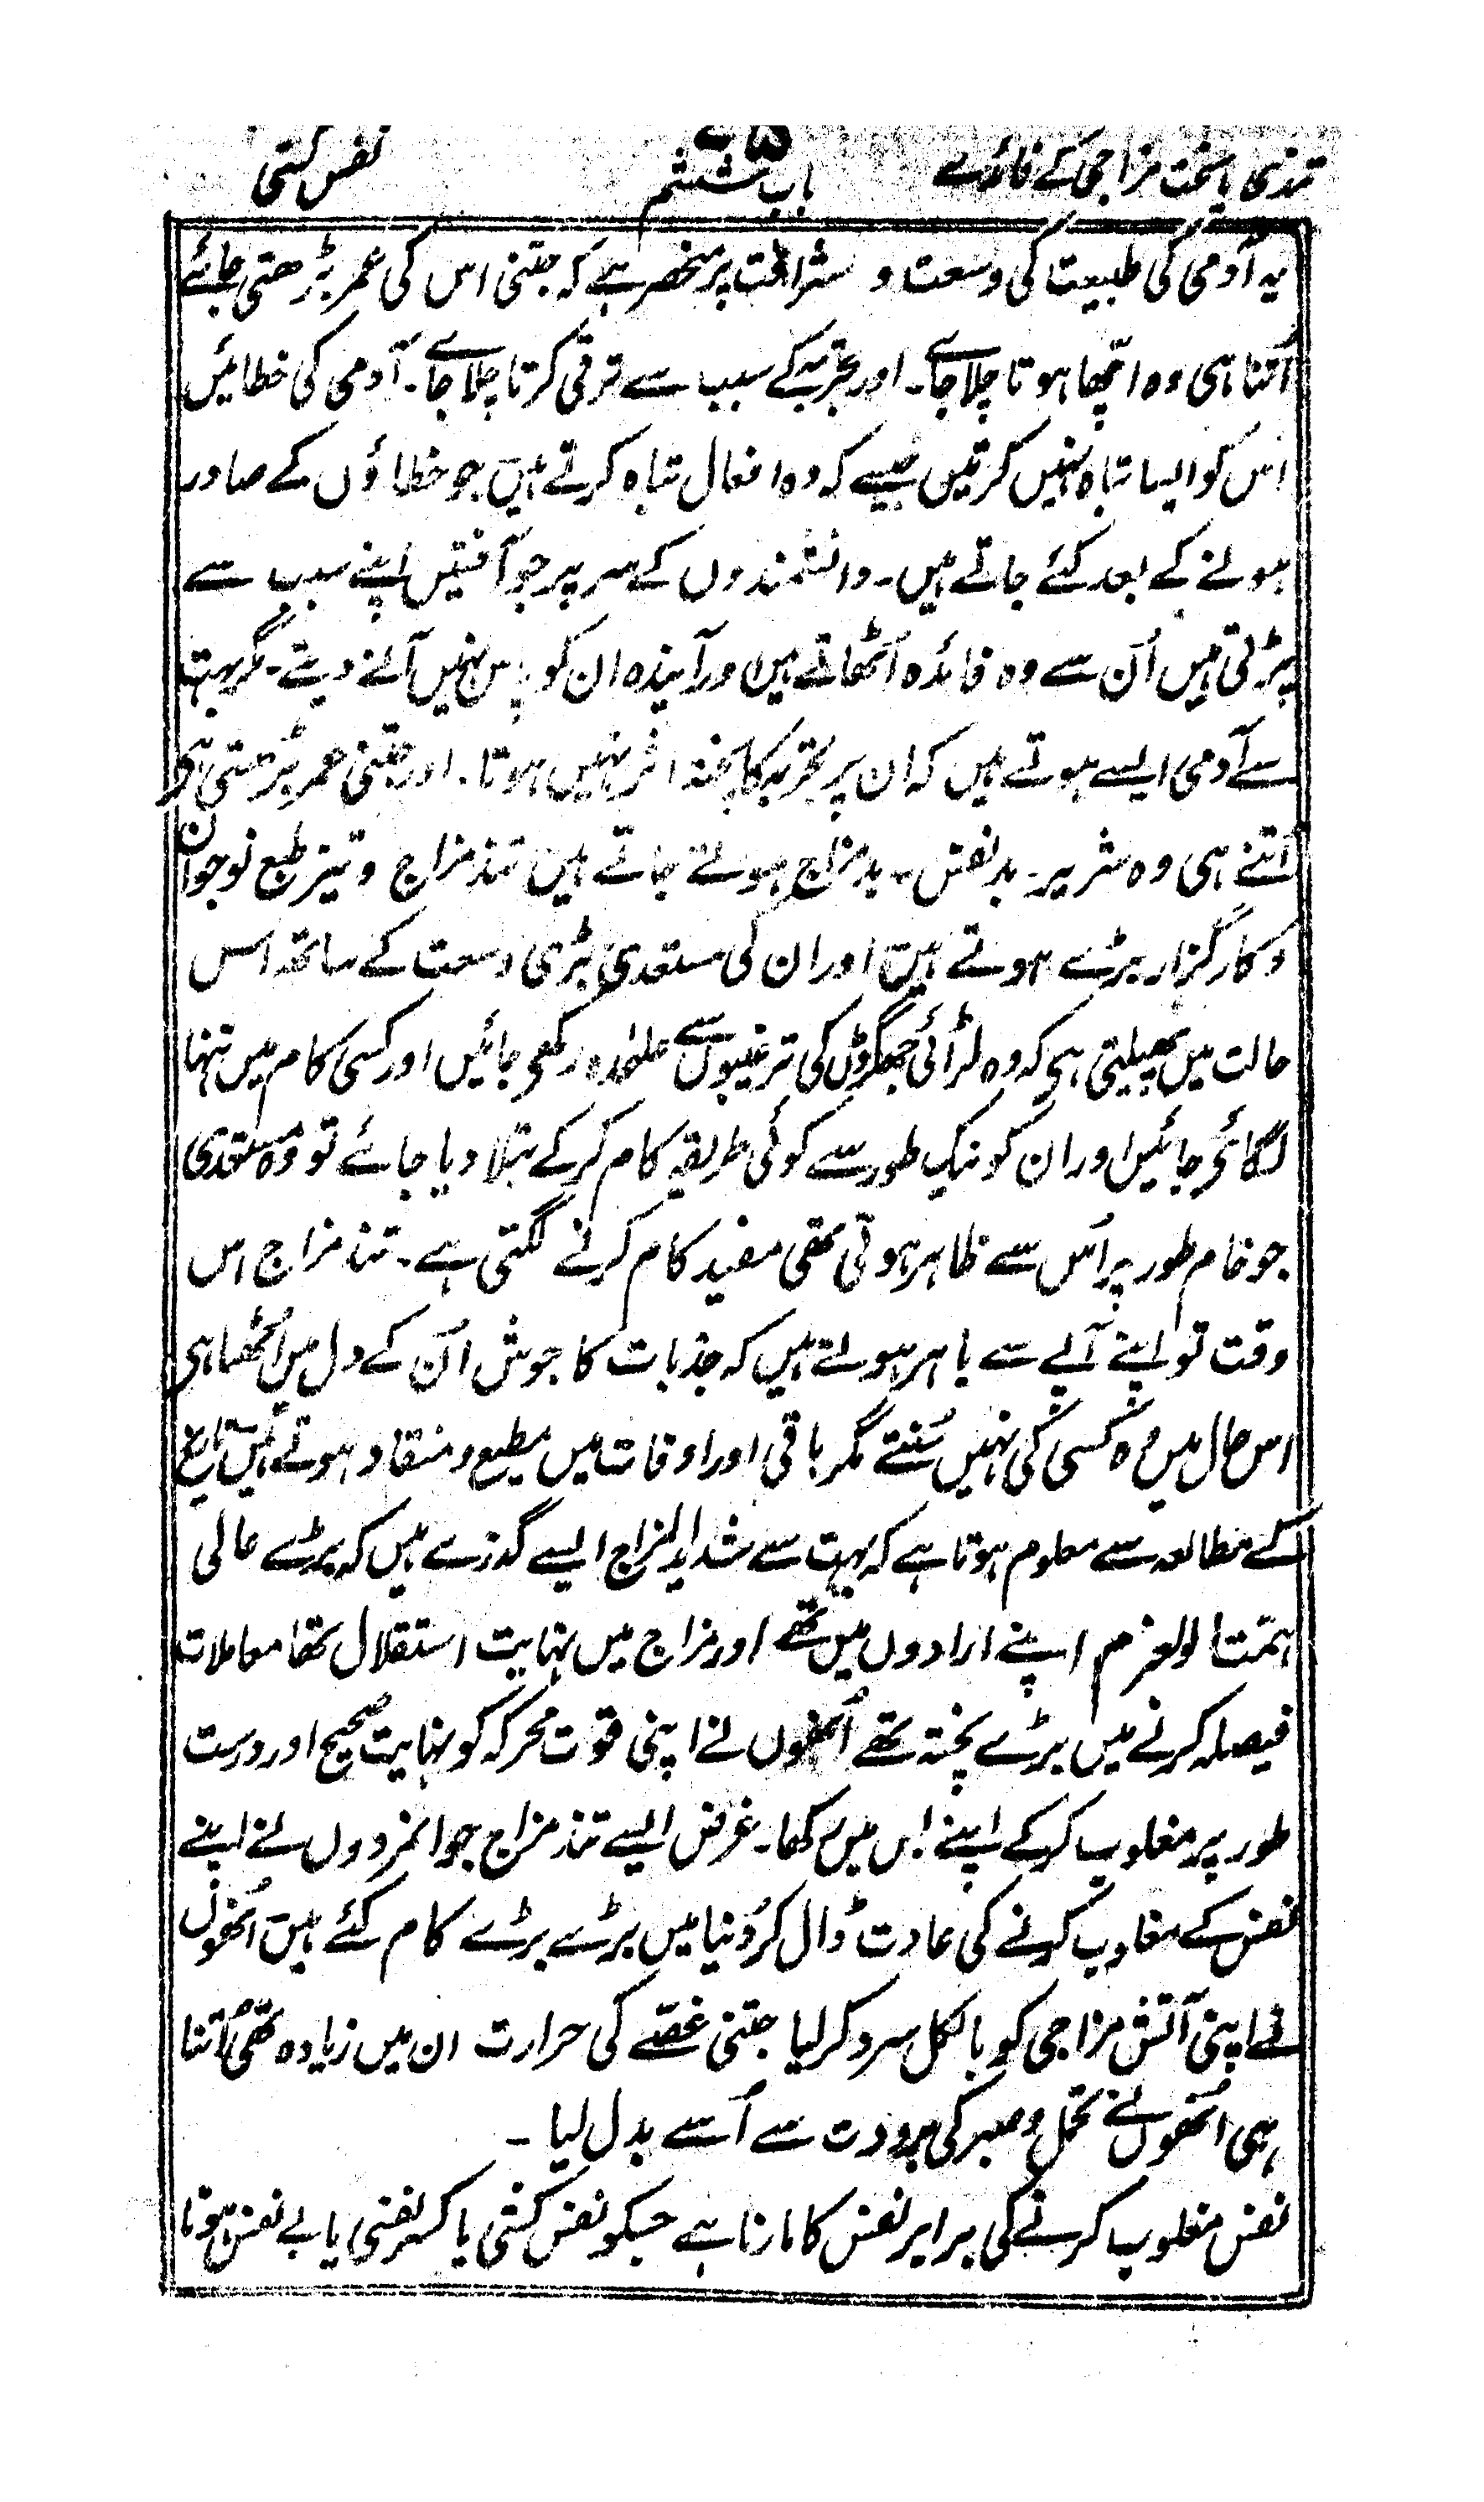 تندی یا سخت مزاجی کے فائدے باب ششم نفس کشی
یہ آدمی کی طبیعت کی وسعت و شرافت پر منحصر ہے کہ جتنی اس کی عمر بڑھتی جائے
اُتنا ہی وہ اچّھا ہوتا چلا جاے۔ اور تجربہ کے سبب سے ترقی کرتا چلا جاے۔ آدمی کی خطائیں
اُس کو ایسا تباہ نہیں کرتیں جیسے کہ وہ افعال تباہ کرتے ہیں جو خطاؤں کے صادر
ہونے کے بعد کئے جاتے ہیں۔ دانشمندوں کے سر پر جو آفتیں اپنے سبب سے
پڑتی ہیں اُن سے وہ فائدہ اُٹھاتے ہیں اور آیندہ ان کو پاس نہیں آنے دیتے۔ مگر بہت
سے آدمی ایسے ہوتے ہیں کہ ان پر تجربہ کا پختہ اثر نہیں ہوتا۔ اور جتنی عمر بڑھتی ہی
اُتنے ہی وہ شریر۔ بد نفس۔ بد مزاج ہوتے جاتے ہیں تند مزاج و تیز طبع نوجوان
و کارگزار بڑے ہوتے ہیں اور ان کی مستعدی بڑی وسعت کے ساتھ اس
حالت میں پھیلتی ہی کہ وہ لڑائی جھگڑوں کی ترغیبوں سے علٰحدہ رکھی جائیں اور کسی کام میں تنہا
لگائی جائیں اور ان کو نیک طور سے کوئی طریقہ کام کر کے بتلا دیا جائے تو وہ مستعدی
جو خام طور پر اُس سے ظاہر ہوتی تھی مفید کام کرنے لگتی ہے۔ تند مزاج اس
وقت تو اپنے آپے سے باہر ہوتے ہیں کہ جذبات کا جوش اُن کے دل میں اُٹھتا ہی
اس حال میں وہ کسی کی نہیں سُنتے مگر باقی اور اوقات میں مطیع و منقاد ہوتے ہیں تاریخ
کے مطالعہ سے معلوم ہوتا ہے کہ بہت سے شدید المزاج ایسے گذرے ہیں کہ بڑے عالی
ہمّت الوالعزم اپنے ارادوں میں تھے اور مزاج میں نہایت استقلال تھا معاملات
فیصلہ کرنے میں بڑے پختہ تھے اُنھوں نے اپنی قوّت محرکہ کو نہایت صحیح اور درست
طور پر مغلوب کر کے اپنے بس میں رکھا۔ غرض ایسے تند مزاج جوانمردوں نے اپنے
نفس کے مغلوب کرنے کی عادت ڈال کر دُنیا میں بڑے بڑے کام کئے ہیں اُنھوں
نے اپنی آتش مزاجی کو بالکل سرد کر لیا جتنی غصّے کی حرارت ان میں زیادہ تھی اُتنا
ہی اُنھوں نے تحمل و صبر کی برودت سے اُسے بدل لیا۔
نفس مغلوب کرنے کی برابر نفس کا مارنا ہے جسکو نفس کشی یا کسر نفسی یا بے نفس ہونا